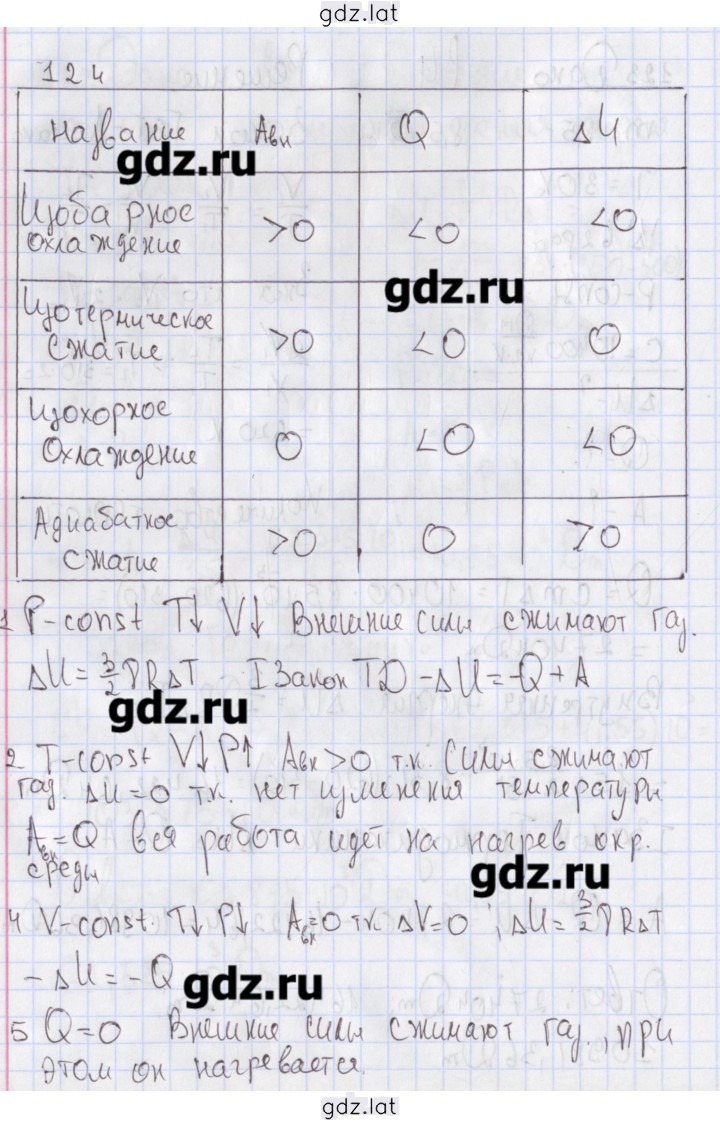 gdz.lat
124
Название Aвн Q ΔU
gdz.ru
Изобарное охлаждение >0 <0 <0
gdz.ru
Изотермическое сжатие >0 <0 0
Изохорное Охлаждение 0 <0 <0
Адиабатное сжатие >0 0 >0
1 P-const T↓ V↓ Внешние силы сжимают газ.
ΔU = 3/2 νRΔT I Закон ТД -ΔU = -Q + A
gdz.ru
2 T-const V↓ P↑ Aвн >0 т.к. Силы сжимают
газ. ΔU = 0 т.к. нет изменения температуры
Aвн = Q вся работа идёт на нагрев окр.
среды
gdz.ru
4 V-const. T↓ P↓ Aвн = 0 т.к. ΔV = 0 ; ΔU = 3/2 νRΔT
- ΔU = - Q
gdz.ru
5 Q = 0 Внешние силы сжимают газ, при
этом он нагревается.
gdz.lat